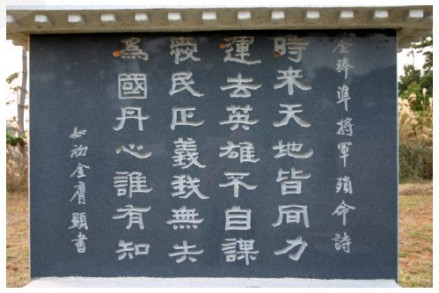 全琫準 將軍 殞命詩
時来天地皆同力
運去英雄不自謀
愛民正義我無失
爲國丹心誰有知
如初 金膺顯 書